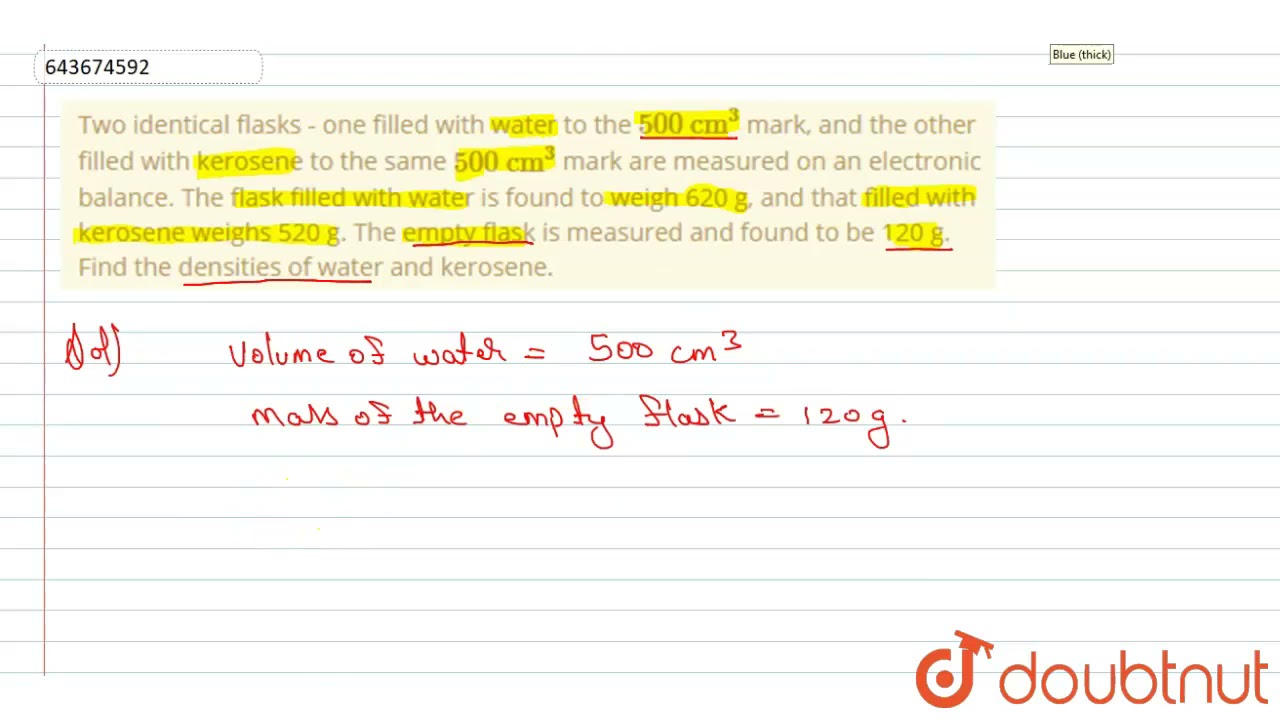 643674592
Blue (thick)
Two identical flasks - one filled with water to the 500 cm³ mark, and the other
filled with kerosene to the same 500 cm³ mark are measured on an electronic
balance. The flask filled with water is found to weigh 620 g, and that filled with
kerosene weighs 520 g. The empty flask is measured and found to be 120 g.
Find the densities of water and kerosene.
Sol) Volume of water = 500 cm³
mass of the empty flask = 120 g.
doubtnut